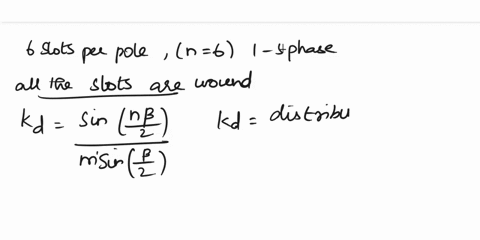 6 slots per pole , (n=6) 1-ϕphase
all the slots are wound
kd = sin (nβ/2) / m sin (β/2) kd = distribu